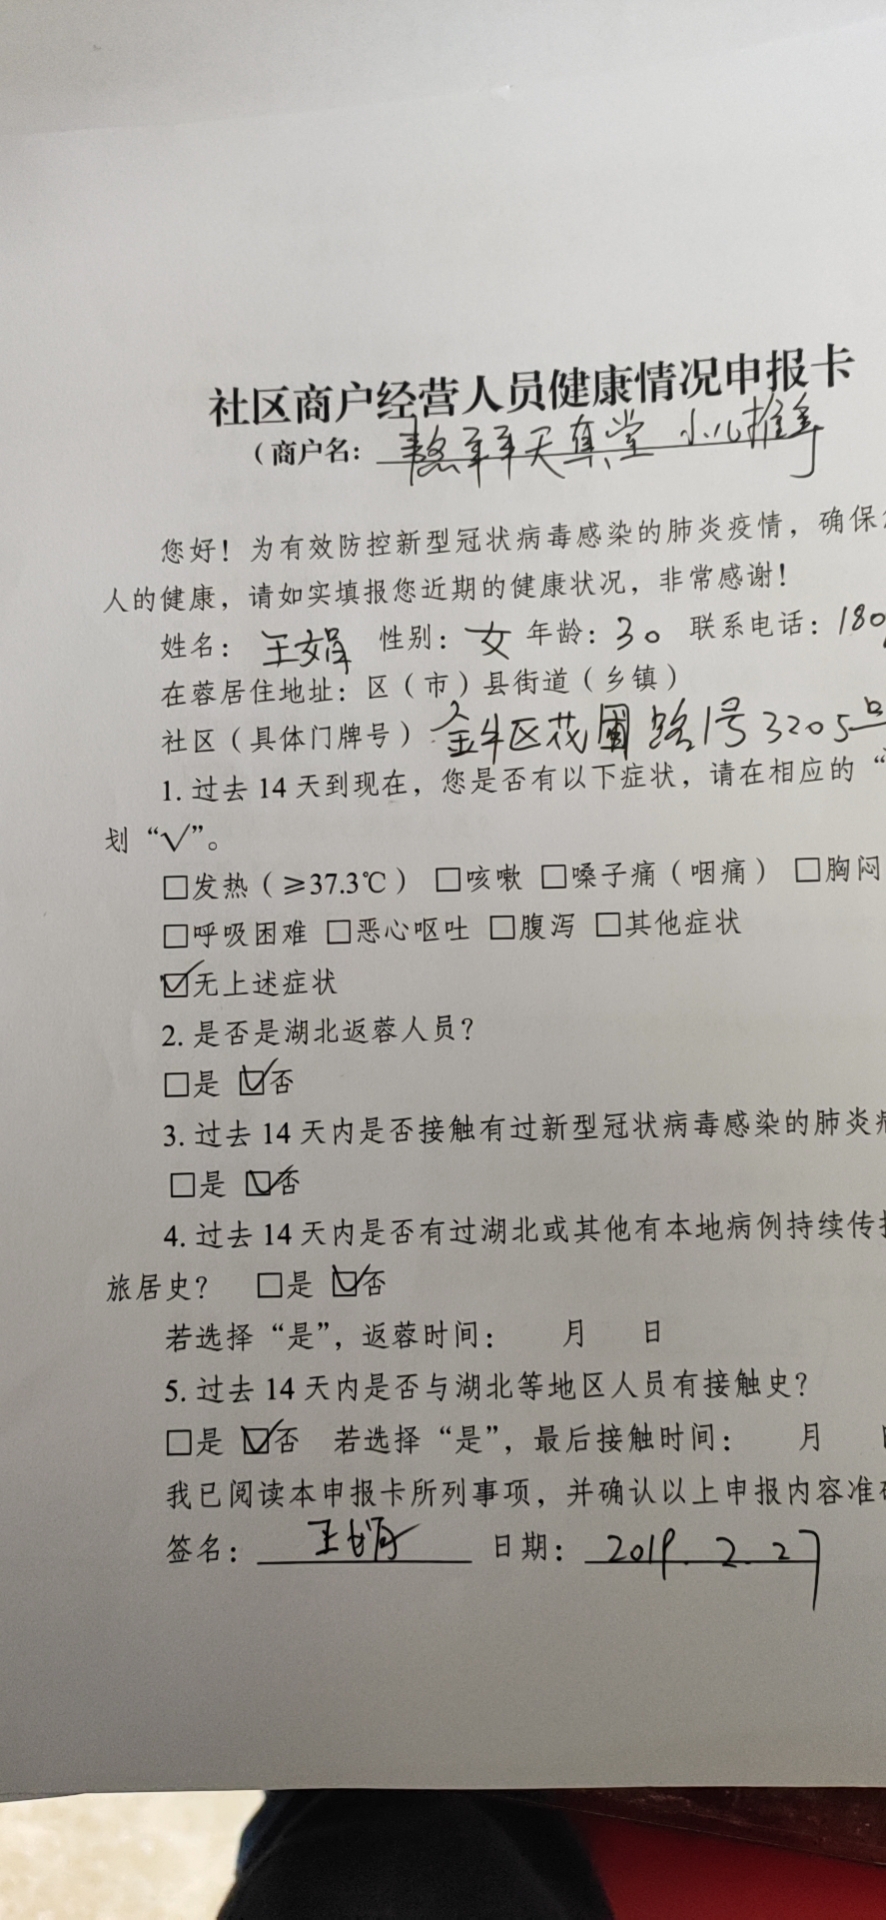 社区商户经营人员健康情况申报卡
(商户名: 天真堂 小儿推拿
您好!为有效防控新型冠状病毒感染的肺炎疫情,确保
人的健康,请如实填报您近期的健康状况,非常感谢!
姓名: 王娟 性别: 女 年龄: 30 联系电话: 180
在蓉居住地址:区(市)县街道(乡镇)
社区(具体门牌号) 金牛区花圃路1号3205号
1. 过去 14 天到现在,您是否有以下症状,请在相应的“
划“√”。
□发热(≥37.3℃) □咳嗽 □嗓子痛(咽痛) □胸闷
□呼吸困难 □恶心呕吐 □腹泻 □其他症状
☑无上述症状
2. 是否是湖北返蓉人员?
□是 ☑否
3. 过去 14 天内是否接触有过新型冠状病毒感染的肺炎病
□是 ☑否
4. 过去 14 天内是否有过湖北或其他有本地病例持续传播
旅居史? □是 ☑否
若选择“是”,返蓉时间: 月 日
5. 过去 14 天内是否与湖北等地区人员有接触史?
□是 ☑否 若选择“是”,最后接触时间: 月 日
我已阅读本申报卡所列事项,并确认以上申报内容准确
签名: 王娟 日期: 2019.2.27